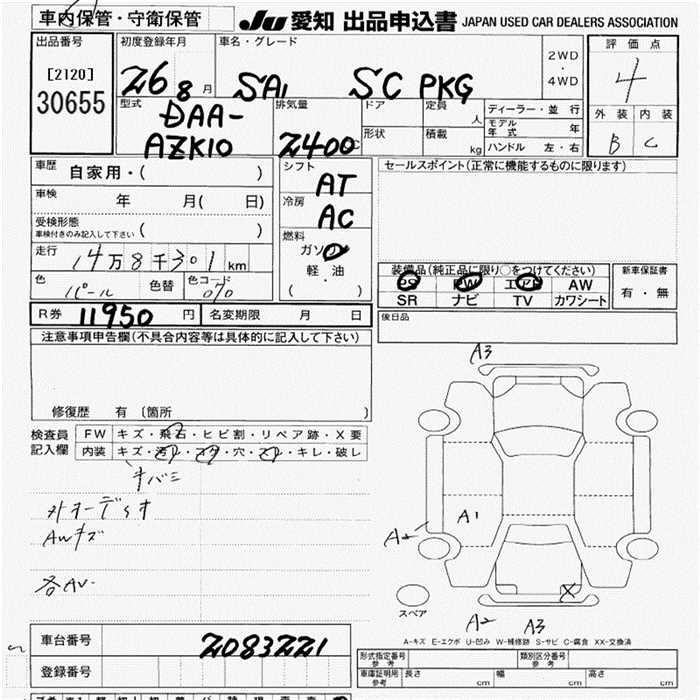 車内保管・守衛保管
JU 愛知 出品申込書 JAPAN USED CAR DEALERS ASSOCIATION
出品番号
[2120]
30655
初度登録年月
26 8 月
車名・グレード
SAI SC PKG
2WD
・
4WD
評価点
4
外装 内装
B C
型式
DAA-
AZK10
排気量
2400 C
ドア
形状
定員
人
積載
kg
ディーラー・並行
モデル年式 年
ハンドル 左・右
車歴 自家用・( )
車検 年 月( 日)
受検形態
車検付きのみ記入して下さい ( )
走行 14万8千301km
色 パール 色替 色コード 070
シフト AT
冷房 AC
燃料
ガソリン
軽・油
( ・ )
セールスポイント(正常に機能するものに限ります)
装備品(純正品に限り○をつけてください)
PS PW エアB AW
SR ナビ TV カワシート
新車保証書
有・無
R券 11950 円 名変期限 月 日
後日品
注意事項申告欄(不具合内容等は具体的に記入して下さい)
修復歴 有〔箇所 〕
検査員
記入欄
FW キズ・飛石・ヒビ割・リペア跡・X要
内装 キズ・汚レ・コゲ・穴・スレ・キレ・破レ
キバミ
AWキズ
A3
A1
A2
スペア
X
A2 A3
A-キズ E-エクボ U-凹み W-補修跡 S-サビ C-腐食 XX-交換済
車台番号 2083221
登録番号
形式指定番号
参考
類別区分番号
参考
車庫証明用
参考
長さ cm 幅 cm 高さ cm